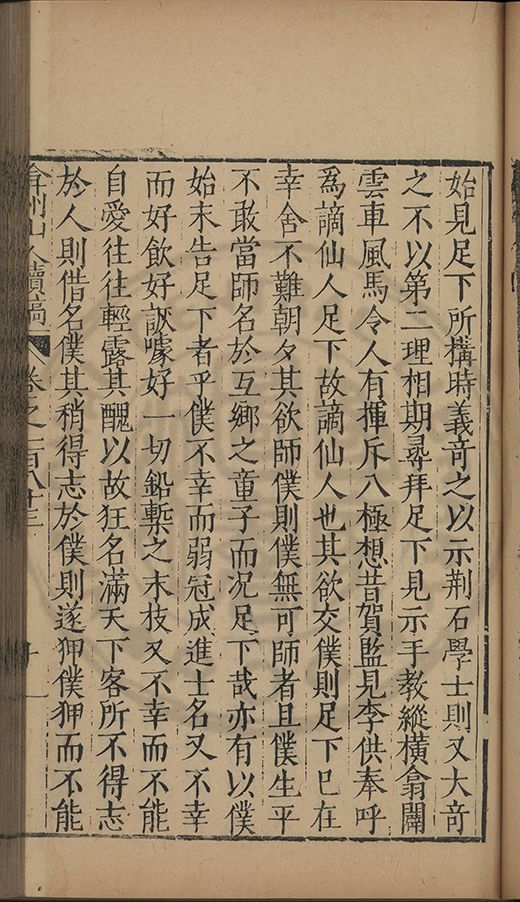 始見足下所搆時義奇之以示荆石學士則又大奇
之不以第二理相期尋拜足下見示手教縱橫翕闢
雲車風馬令人有揮斥八極想昔賀監見李供奉呼
爲謫仙人足下故謫仙人也其欲交僕則足下巳在
幸舍不難朝夕其欲師僕則僕無可師者且僕生平
不敢當師名於互鄉之童子而况足下哉亦有以僕
始末告足下者乎僕不幸而弱冠成進士名又不幸
而好飲好諔噱好一切鉛槧之末枝又不幸而不能
自愛往往輕露其醜以故狂名滿天下客所不得志
於人則借名僕其稍得志於僕則遂狎僕狎而不能
弇州山人續稿 卷之一百八十三